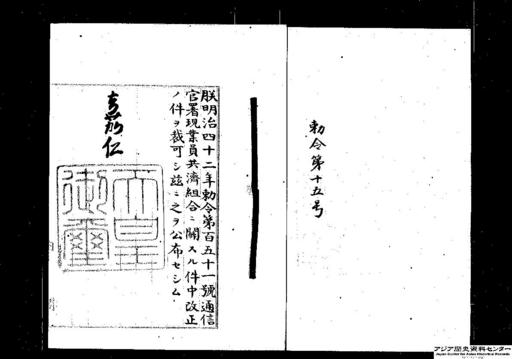 勅令第十五号
朕明治四十二年勅令第百五十一號通信
官署現業員共濟組合ニ關スル件中改正
ノ件ヲ裁可シ茲ニ之ヲ公布セシム
嘉仁
天皇
御璽
アジア歴史資料センター
Japan Center for Asian Historical Records